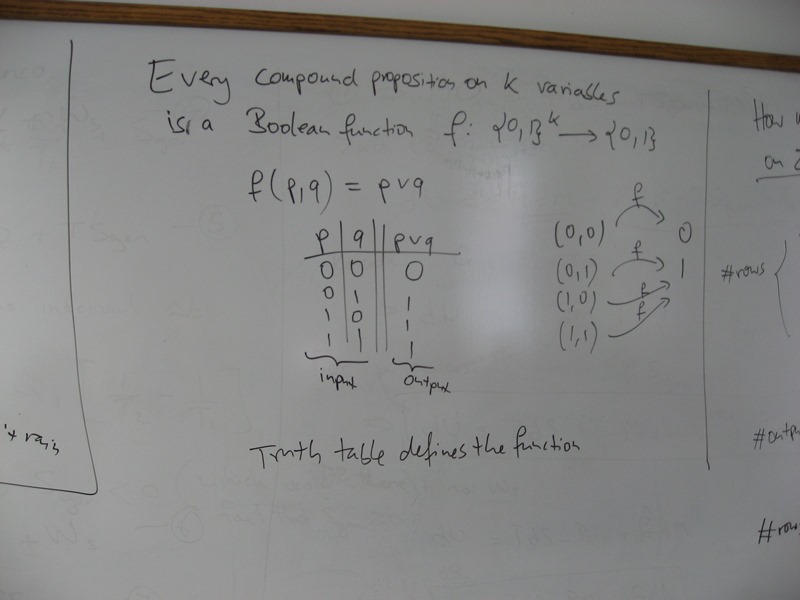 Every compound proposition on k variables
is a Boolean function f: {0,1}^k → {0,1}
f(p,q) = p∨q
p q p∨q
0 0 0
0 1 1
1 0 1
1 1 1
input output
f
(0,0) 0
f
(0,1) 1
f
(1,0)
f
(1,1)
Truth table defines the function
How
on 2
#rows
#outpu
#rows
't rain